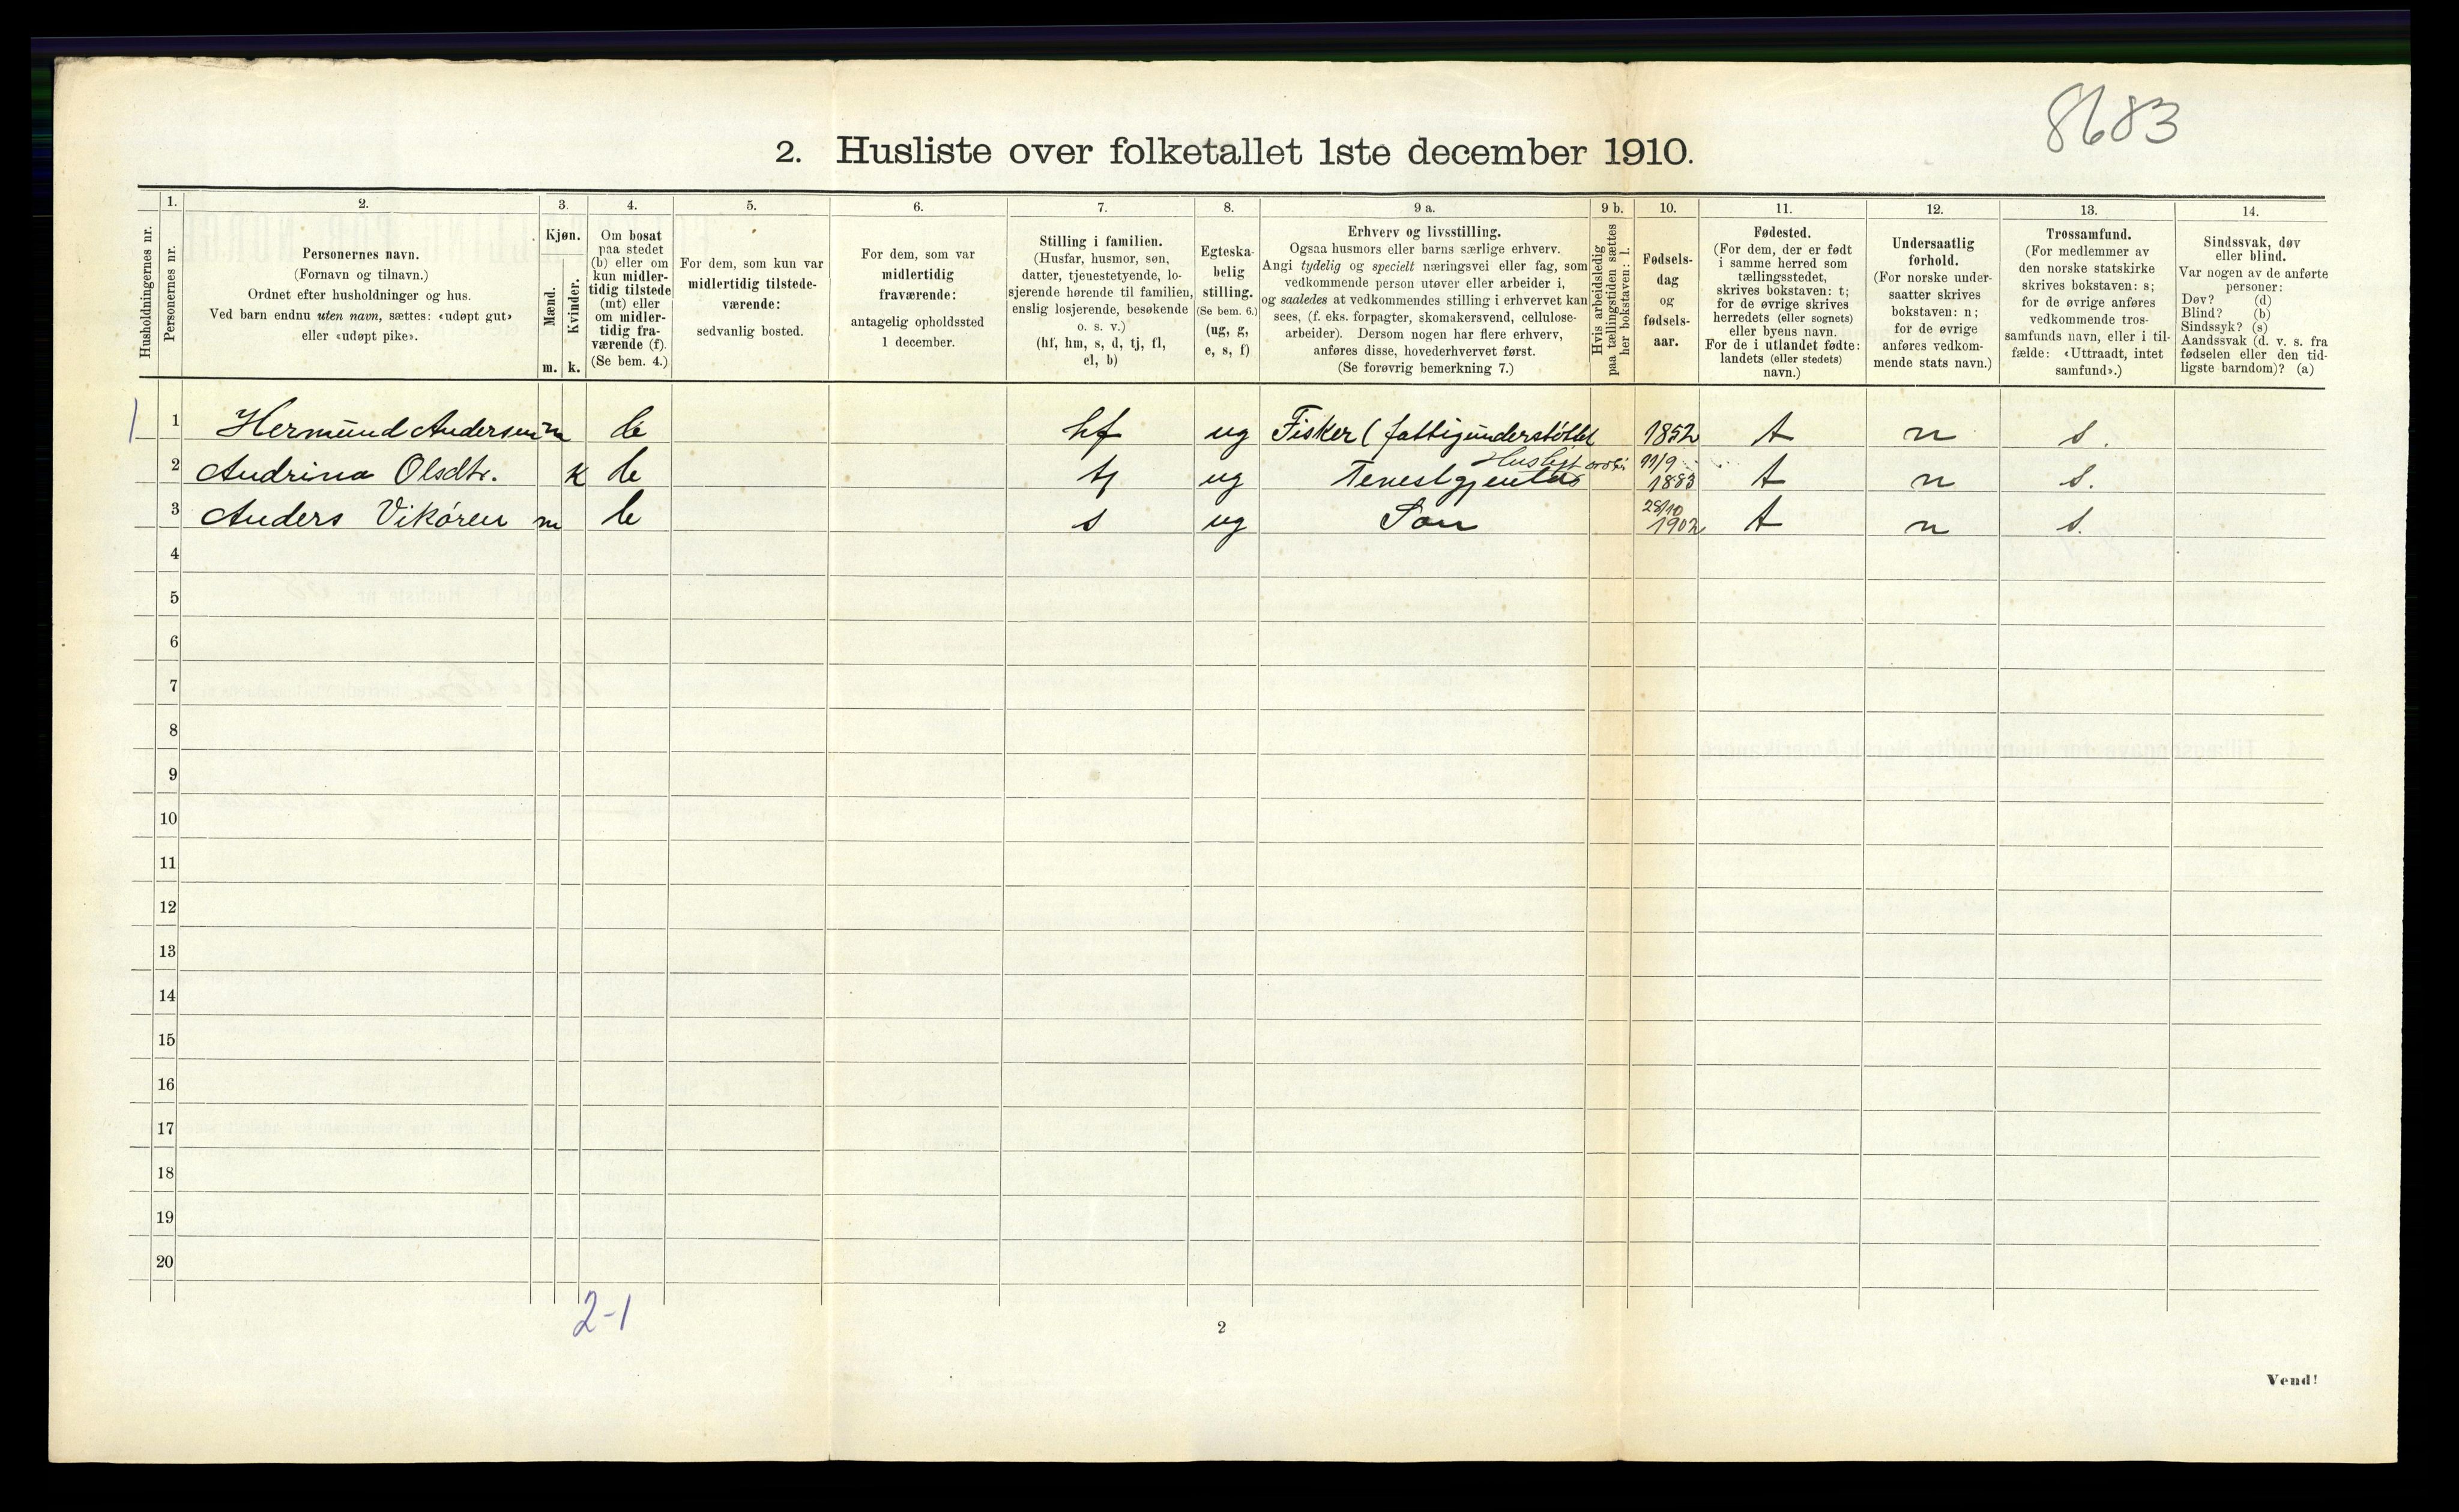 8683
2. Husliste over folketallet 1ste december 1910.
Husholdningernes nr.
1.
Personernes nr.
2.
Personernes navn.
(Fornavn og tilnavn.)
Ordnet efter husholdninger og hus.
Ved barn endnu uten navn, sættes: «udøpt gut»
eller «udøpt pike».
3.
Kjøn.
Mænd.
Kvinder.
m. k.
4.
Om bosat
paa stedet
(b) eller om
kun midler-
tidig tilstede
(mt) eller
om midler-
tidig fra-
værende (f).
(Se bem. 4.)
5.
For dem, som kun var
midlertidig tilstede-
værende:
sedvanlig bosted.
6.
For dem, som var
midlertidig
fraværende:
antagelig opholdssted
1 december.
7.
Stilling i familien.
(Husfar, husmor, søn,
datter, tjenestetyende, lo-
sjerende hørende til familien,
enslig losjerende, besøkende
o. s. v.)
(hf, hm, s, d, tj, fl,
el, b)
8.
Egteska-
belig
stilling.
(Se bem. 6.)
(ug, g,
e, s, f)
9 a.
Erhverv og livsstilling.
Ogsaa husmors eller barns særlige erhverv.
Angi tydelig og specielt næringsvei eller fag, som
vedkommende person utøver eller arbeider i,
og saaledes at vedkommendes stilling i erhvervet kan
sees, (f. eks. forpagter, skomakersvend, cellulose-
arbeider). Dersom nogen har flere erhverv,
anføres disse, hovederhvervet først.
(Se forøvrig bemerkning 7.)
9 b.
Hvis arbeidsledig
paa tællingstiden sættes
her bokstaven: l.
10.
Fødsels-
dag
og
fødsels-
aar.
11.
Fødested.
(For dem, der er født
i samme herred som
tællingsstedet,
skrives bokstaven: t;
for de øvrige skrives
herredets (eller sognets)
eller byens navn.
For de i utlandet fødte:
landets (eller stedets)
navn.)
12.
Undersaatlig
forhold.
(For norske under-
saatter skrives
bokstaven: n;
for de øvrige
anføres vedkom-
mende stats navn.)
13.
Trossamfund.
(For medlemmer av
den norske statskirke
skrives bokstaven: s;
for de øvrige anføres
vedkommende tros-
samfunds navn, eller i til-
fælde: «Uttraadt, intet
samfund».)
14.
Sindssvak, døv
eller blind.
Var nogen av de anførte
personer:
Døv? (d)
Blind? (b)
Sindssyk? (s)
Aandssvak (d. v. s. fra
fødselen eller den tid-
ligste barndom)? (a)
1 1 Hermund Andersen m b hf ug Fisker (fattigunderstøttet 1852 t n s.
2 Andrina Olsdtr. k b tj ug Tenestgjenta Husligt arbei 11/9 1883 t n s.
3 Anders Vikøren m b s ug Son 28/10 1902 t n s.
4
5
6
7
8
9
10
11
12
13
14
15
16
17
18
19
20
2-1
2
Vend!